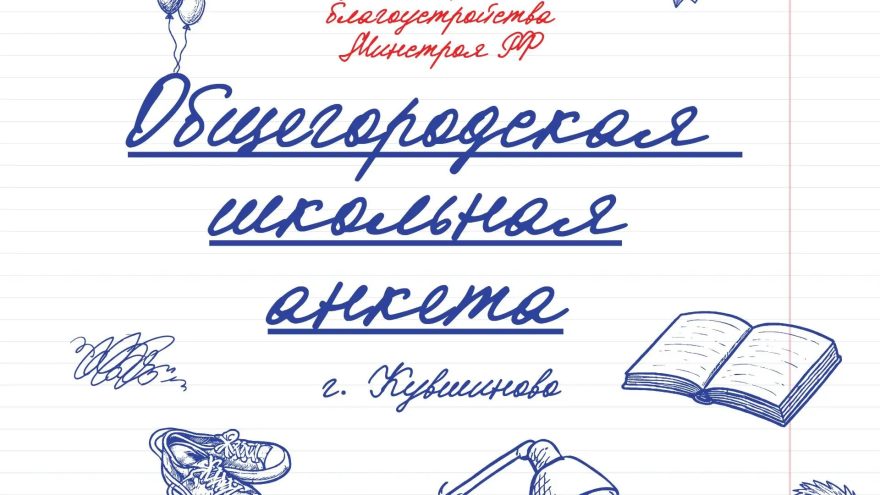 благоустройства
Минстроя РФ
Общегородская
школьная
анкета
г. Кувшиново